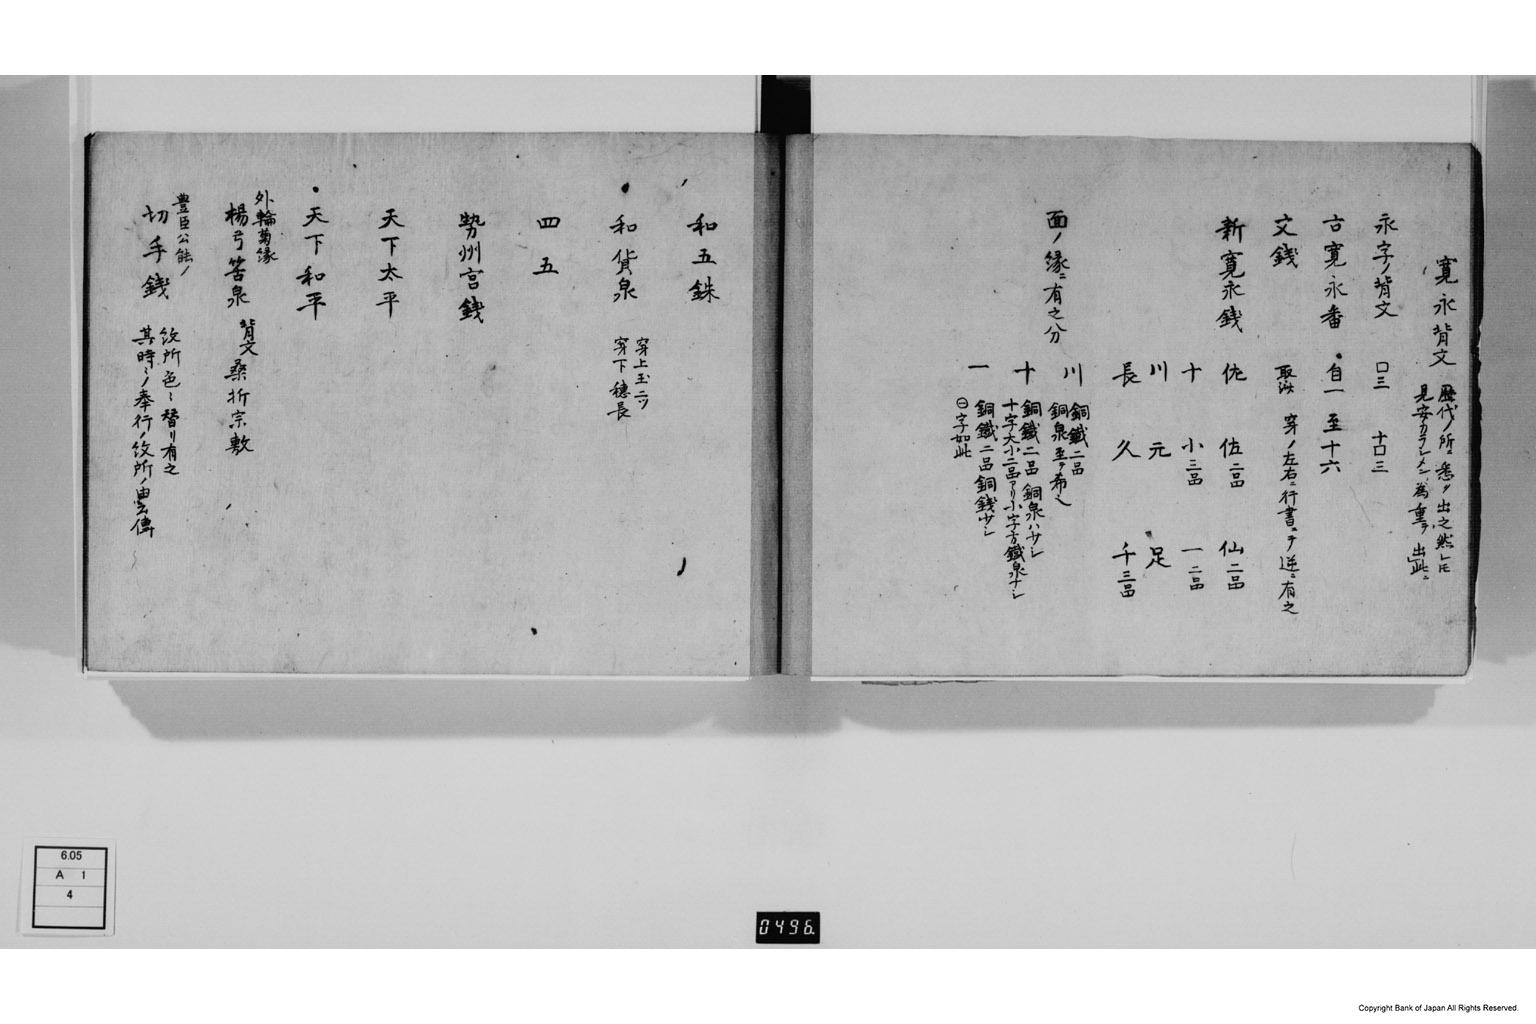 寛永背文
歴代ノ所ニ悉ク出之然レ𪜈
見安カランメン為重ヲ出此ニ
永字ノ背文 口三 十口三
古寛永番 自一至十六
文銭 取出 穿ノ左右ニ行書ニテ逆ニ有之
新寛永銭 佐 佐二品 仙二品
十 小三品 一二品
川 元 足
長 久 千三品
面ノ縁ニ有之分
川 銅鐵二品
銅泉至テ希也
十 銅鐵二品 銅泉ハ少シ
十字大小二品アリ小字方鐵泉ナシ
一 銅鐵二品銅銭少シ
㊀字如此
和五銖
和貨泉 穿上玉二ツ
穿下穂長
四五
勢州宮銭
天下太平
天下和平
外輪菊縁
楊弓筈泉 背文桑折宗敷
豊臣公能ノ
切手銭 紋所色々替リ有之
其時々ノ奉行ノ紋所ノ由云傳
6.05
A 1
4
0496.
Copyright Bank of Japan All Rights Reserved.